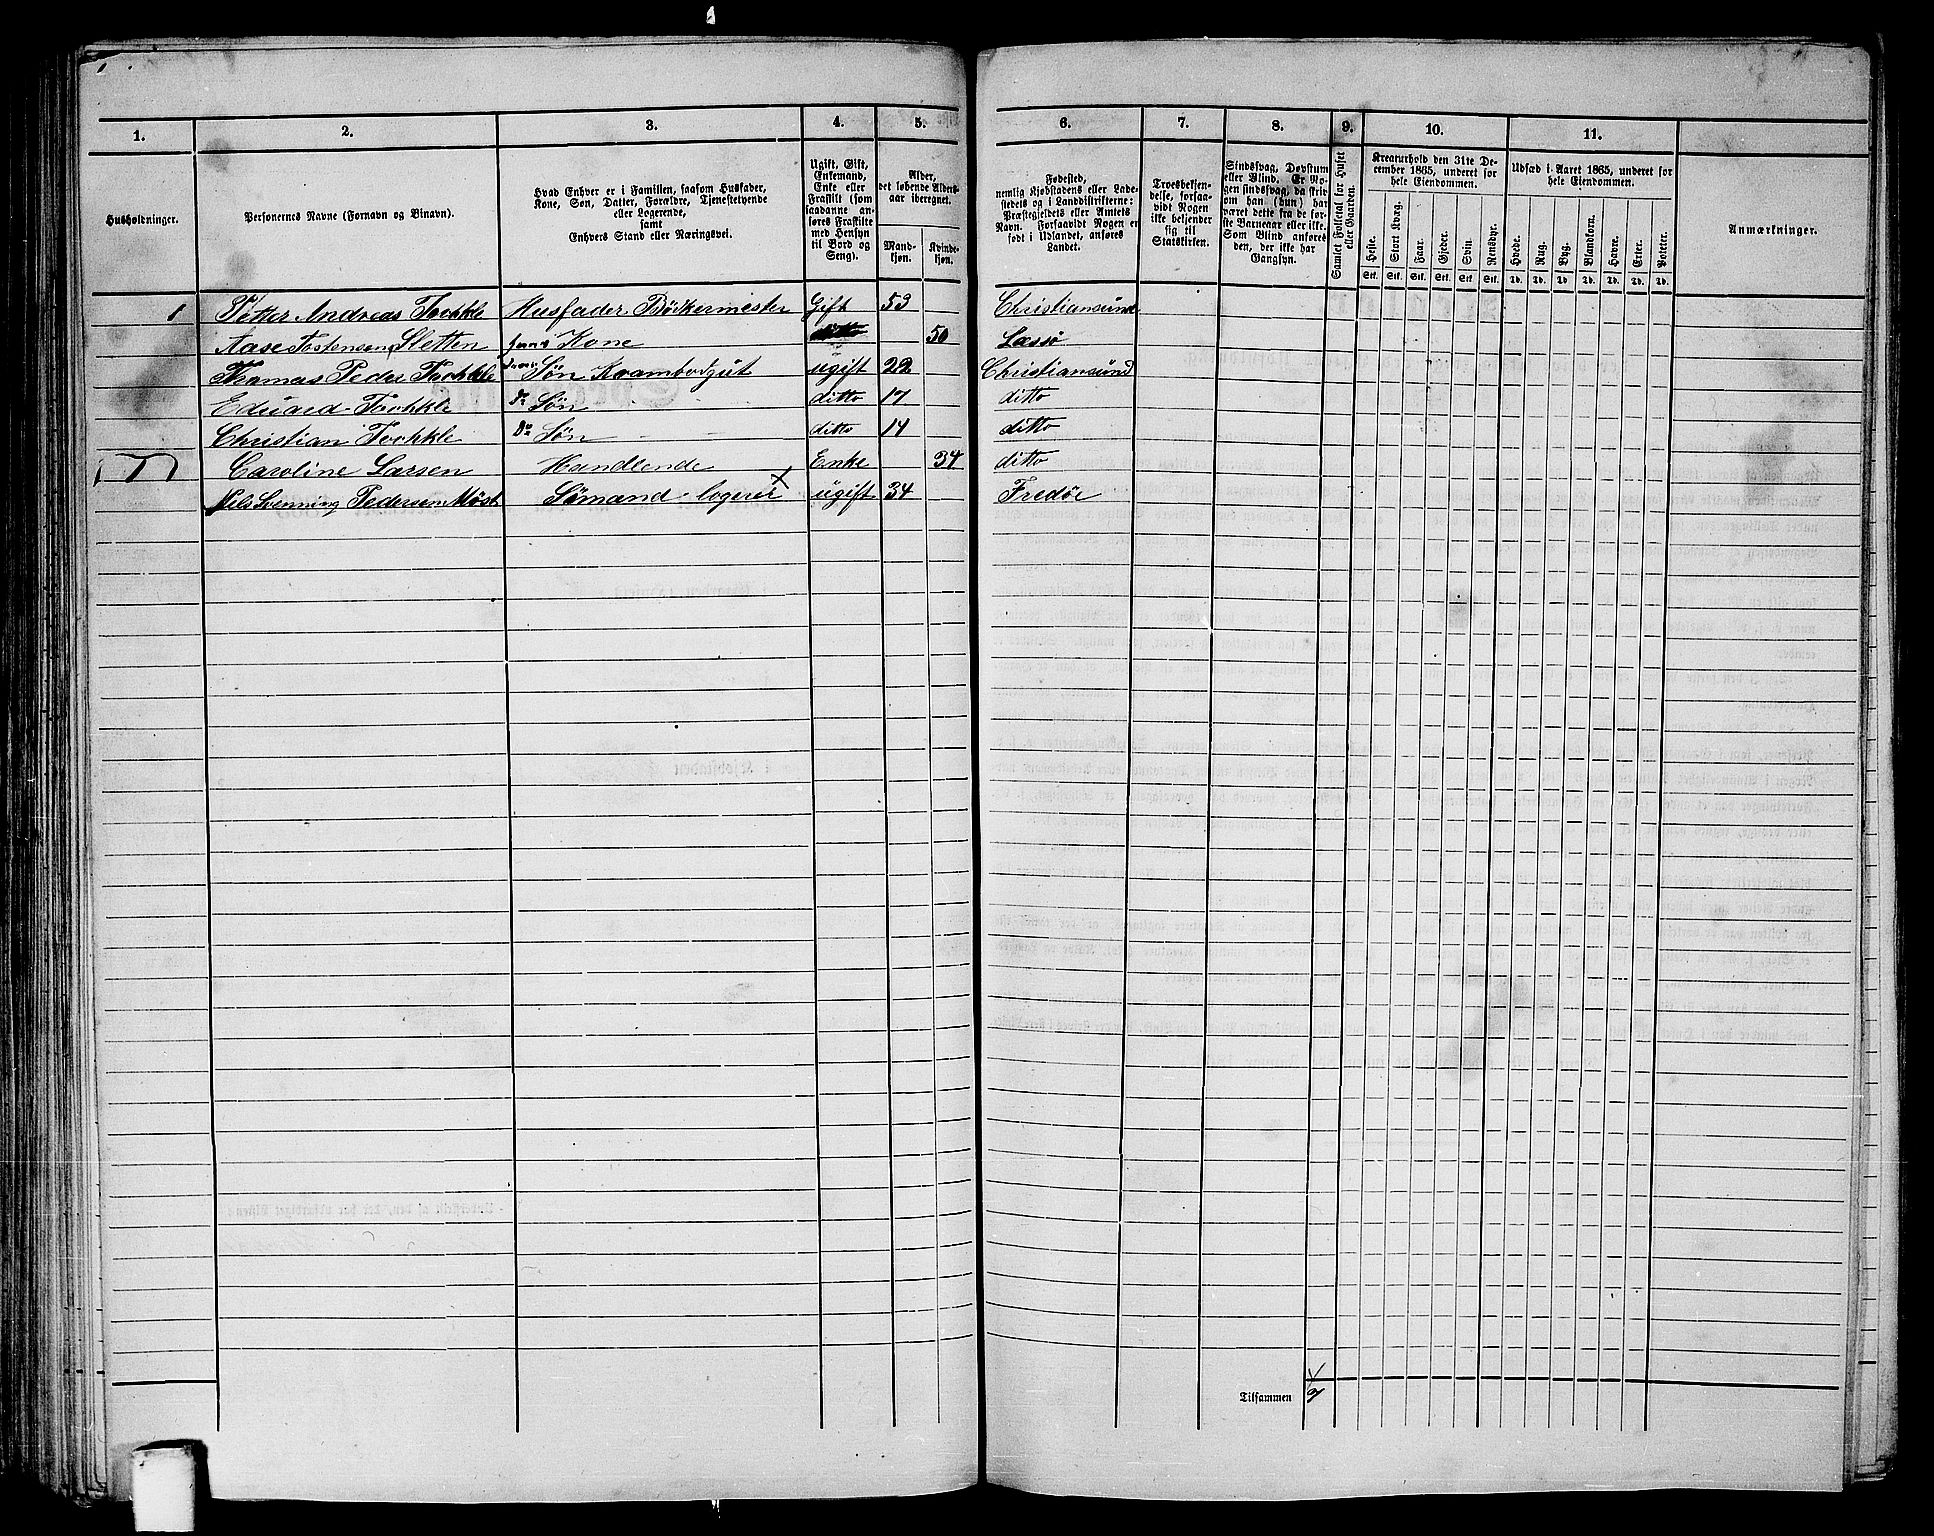 1. 2. 3. 4. 5. 6. 7. 8. 9. 10. 11.
Husholdninger.
Personernes Navne (Fornavn og Binavn).
Hvad Enhver er i Familien, saasom Husfader,
Kone, Søn, Datter, Forældre, Tjenestetyende
eller Logerende,
samt
Enhvers Stand eller Næringsvei.
Ugift, Gift,
Enkemand,
Enke eller
Fraskilt (som
saadanne an-
føres Fraskilte
med Hensyn
til Bord og
Seng).
Alder,
det løbende Alders-
aar iberegnet.
Mand-
kjøn.
Kvinde-
kjøn.
Fødested,
nemlig Kjøbstadens eller Lade-
stedets og i Landdistrikterne:
Præstegjeldets eller Amtets
Navn. Forsaavidt Nogen er
født i Udlandet, anføres
Landet.
Troesbekjen-
delse, forsaa-
vidt Nogen
ikke bekjender
sig til
Statskirken.
Sindssvag, Døvstum
eller Blind. Er No-
gen sindssvag, da skriv
om han (hun) har
været dette fra de før-
ste Barneaar eller ikke.
Som Blind anføres
den, der ikke har
Gangsyn.
Samlet Folketal for Huset
eller Gaarden.
Kreaturhold den 31te De-
cember 1865, underet for
hele Eiendommen.
Heste. Stort Kvæg. Faar. Gjeder. Svin. Rensdyr.
Stk. Stk. Stk. Stk. Stk. Stk.
Udsæd i Aaret 1865, underet for
hele Eiendommen.
Hvede. Rug. Byg. Blandkorn. Havre. Erter. Poteter.
Td. Td. Td. Td. Td. Td. Td.
Anmærkninger.
1 Petter Andreas Husfader Bödkermester Gift 53 Christiansund
Aase Tostensen Sletten hans Kone ditto 50 Læssø
Thomas Peder deres Søn Krambodgut ugift 22 Christiansund
Eduard do Søn ditto 17 ditto
Christian do Søn ditto 14 ditto
Caroline Larsen Handlende Enke 34 ditto
Nils Svenning Pedersen Møst Sømand logerer x ugift 34 Fredør
Tilsammen 7